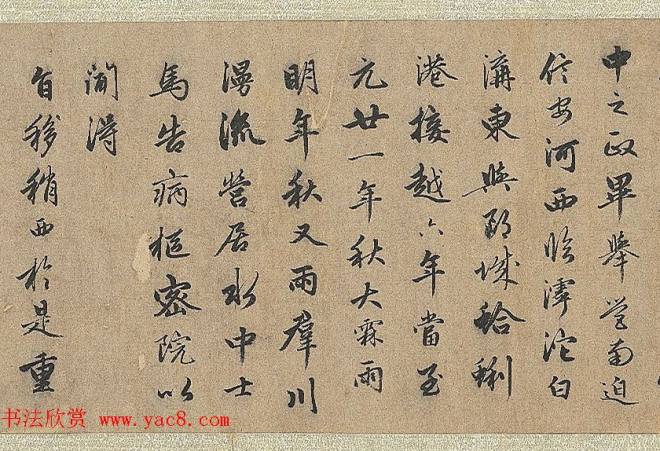 中之政畢舉营南迫
信安河西臨滹沱白
溝東與郎城蛤蜊
港接越六年當至
元廿一年秋大霖雨
明年秋又雨羣川
漫流營居水中士
馬告病樞密院以
聞得
旨移稍西於是重
书法欣赏 www.yac8.com